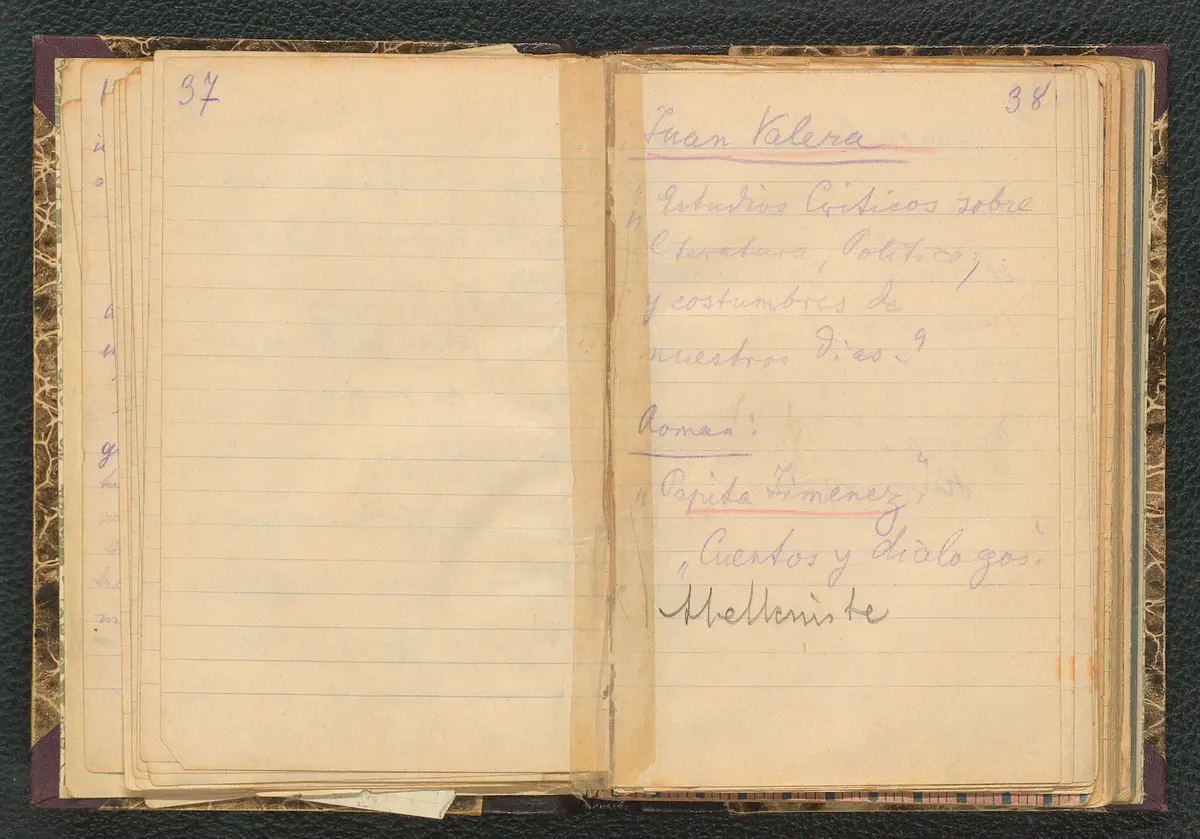 37
38
Juan Valera
„Estudios Criticos sobre
literatura, Politica,
y costumbres de
nuestros dias.“
Roman:
„Pepita Jimenez“.
„Cuentos y dialogos“.